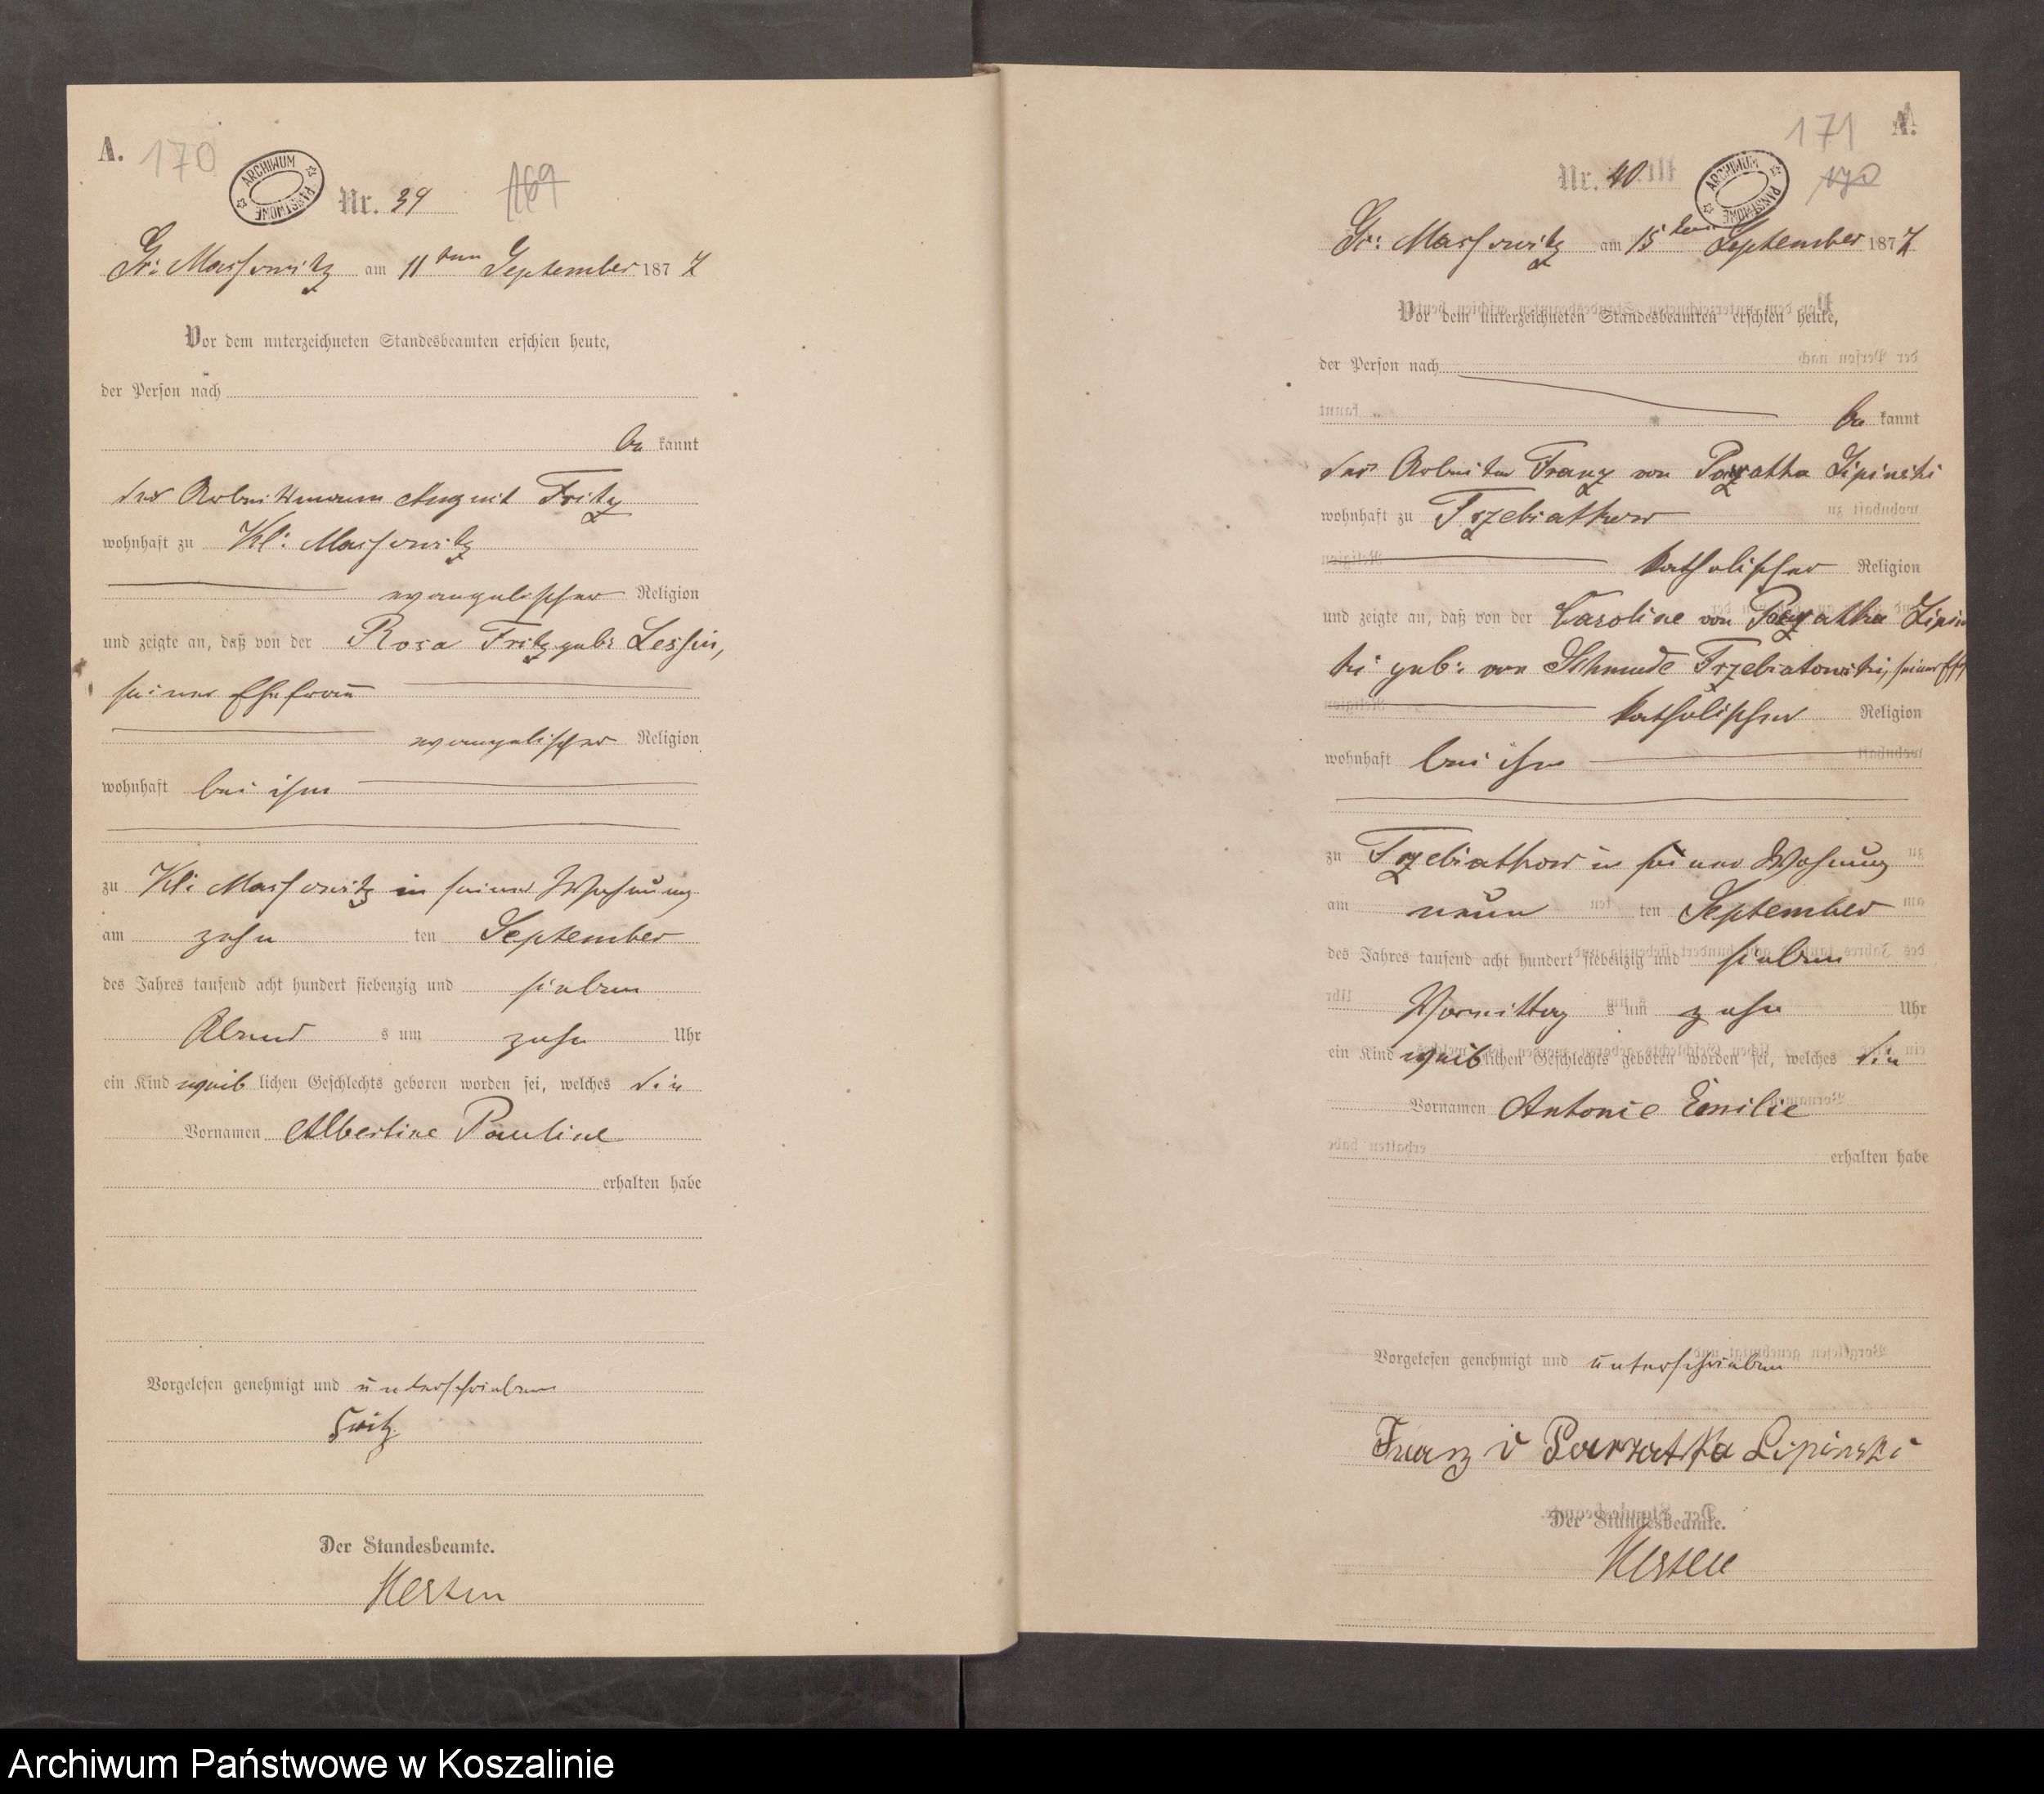 A. 170
ARCHIWUM PAŃSTWOWE
Nr. 39 169
Gr: Massowitz am 11ten September 1877
Vor dem unterzeichneten Standesbeamten erschien heute,
der Person nach
be kannt
der Arbeitsmann August Fritz
wohnhaft zu Kl: Massowitz
evangelischer Religion
und zeigte an, daß von der Rosa Fritz geb: Lessin,
seiner Ehefrau
evangelischer Religion
wohnhaft bei ihm
zu Kl: Massowitz in seiner Wohnung
am zehn ten September
des Jahres tausend acht hundert siebenzig und sieben
Abend s um zehn Uhr
ein Kind weib lichen Geschlechts geboren worden sei, welches die
Vornamen Albertine Pauline
erhalten habe
Vorgelesen genehmigt und unterschrieben
Fritz
Der Standesbeamte.
Kersten
171 A.
Nr. 40 170
ARCHIWUM PAŃSTWOWE
Gr: Massowitz am 15ten September 1877
Vor dem unterzeichneten Standesbeamten erschien heute,
der Person nach
be kannt
der Arbeiter Franz von Lipinski
wohnhaft zu Trzebiatkow
katholischer Religion
und zeigte an, daß von der Caroline von Lipins
ki geb: von Schmude Trzebiatowski, seiner
katholischer Religion
wohnhaft bei ihm
zu Trzebiatkow in seiner Wohnung
am neun ten September
des Jahres tausend acht hundert siebenzig und sieben
Vormittag s um zehn Uhr
ein Kind weib lichen Geschlechts geboren worden sei, welches die
Vornamen Antonie Emilie
erhalten habe
Vorgelesen genehmigt und unterschrieben
Franz v Parzatka Lipinski
Der Standesbeamte.
Kersten
Archiwum Państwowe w Koszalinie